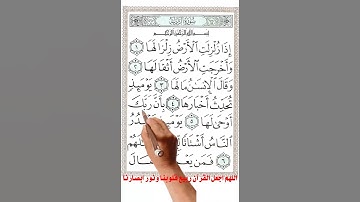 سورة الزلزلة
بسم الله الرحمن الرحيم
إِذَا زُلْزِلَتِ ٱلْأَرْضُ زِلْزَالَهَا ١
وَأَخْرَجَتِ ٱلْأَرْضُ أَثْقَالَهَا ٢
وَقَالَ ٱلْإِنسَٰنُ مَا لَهَا ٣ يَوْمَئِذٍ
تُحَدِّثُ أَخْبَارَهَا ٤ بِأَنَّ رَبَّكَ
أَوْحَىٰ لَهَا ٥ يَوْمَئِذٍ يَصْدُرُ
ٱلنَّاسُ أَشْتَاتًا
فَمَن يَعْمَلْ
اللهم اجعل القرآن ربيع قلوبنا ونور أبصارنا